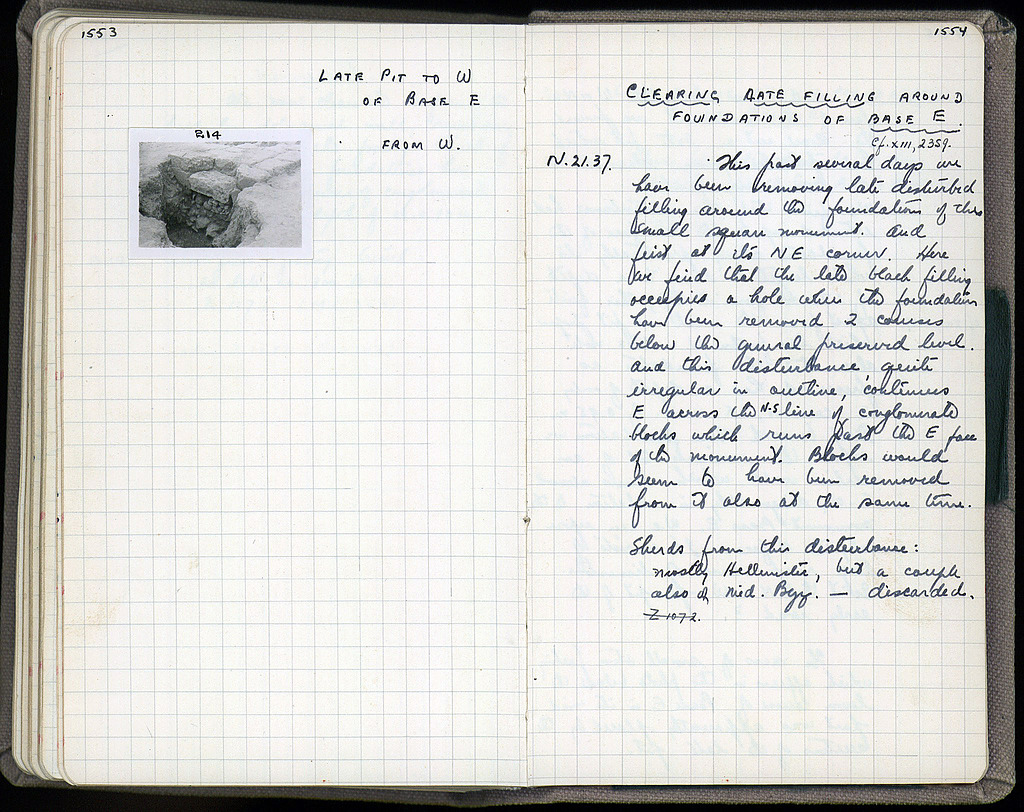 1553
LATE PIT TO W
OF BASE E
FROM W.
E14
1554
CLEARING LATE FILLING AROUND
FOUNDATIONS OF BASE E.
Cf. XIII, 2359.
N.21.37. This past several days we
have been removing late disturbed
filling around the foundations of this
small square monument. And
first at its NE corner. Here
we find that the late black filling
occupies a hole where the foundations
have been removed 2 courses
below the general preserved level.
And this disturbance, quite
irregular in outline, continues
E across the N-S line of conglomerate
blocks which runs past the E face
of the monument. Blocks would
seem to have been removed
from it also at the same time.
Sherds from this disturbance:
mostly Hellenistic, but a couple
also of Med. Byz. — discarded.
Z 1072.